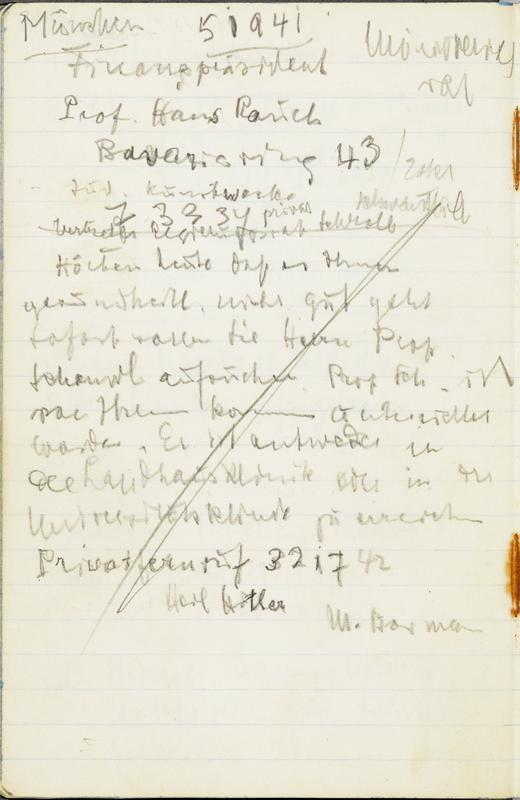 München 5 1 9 4 1
Finanzpräsident
Prof. Hans Rauch
Bavariaring 43
jüd. Kunstwerke
7 3 3 3 4 privat
Vertreter Regierungsrat Schwalb
Hörten heute daß es Ihnen
gesundheitl. nicht gut geht
sofort sollen Sie Herrn Prof.
aufsuchen. Prof Sch. ist
von Ihrem kommen unterrichtet
worden. Er ist entweder in
der Landhausklinik oder in der
Universitätsklinik zu erreichen
Privatfernruf 3 2 1 7 42
Heil Hitler
M. Borman